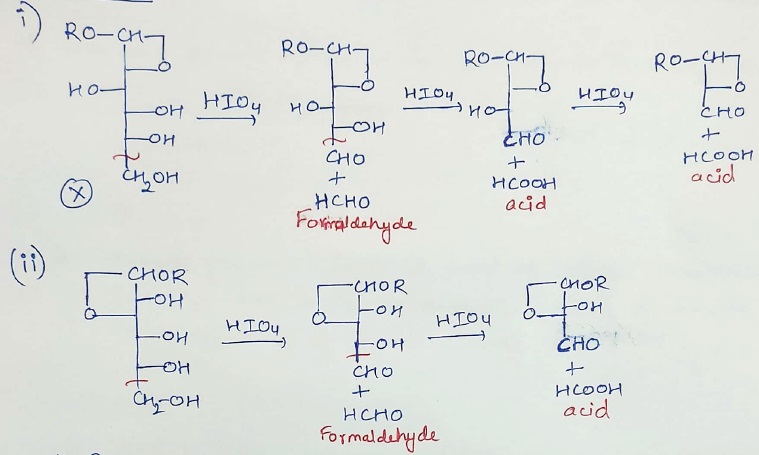 i)
RO-CH
O
HO
OH
OH
CH2OH
X
HIO4
RO-CH
O
HO
OH
CHO
+
HCHO
Formaldehyde
HIO4
RO-CH
O
HO
CHO
+
HCOOH
acid
HIO4
RO-CH
O
CHO
+
HCOOH
acid
(ii)
CHOR
OH
O
OH
OH
CH2-OH
HIO4
CHOR
OH
O
OH
CHO
+
HCHO
Formaldehyde
HIO4
CHOR
OH
O
CHO
+
HCOOH
acid